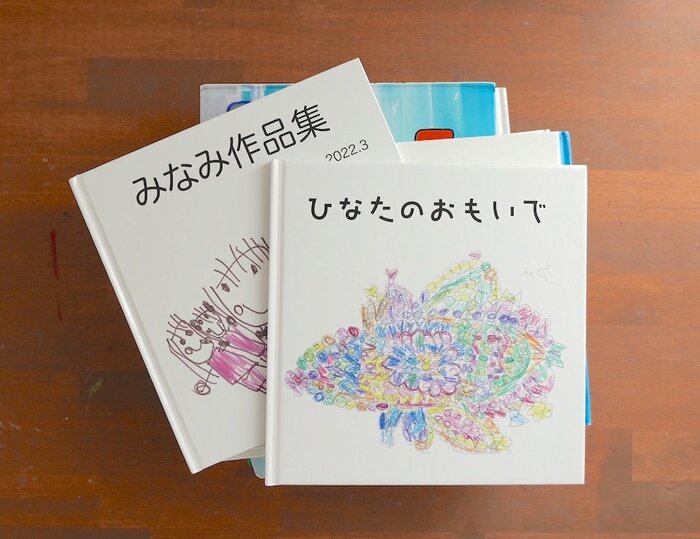 みなみ作品集
2022.3
ひなたのおもいで